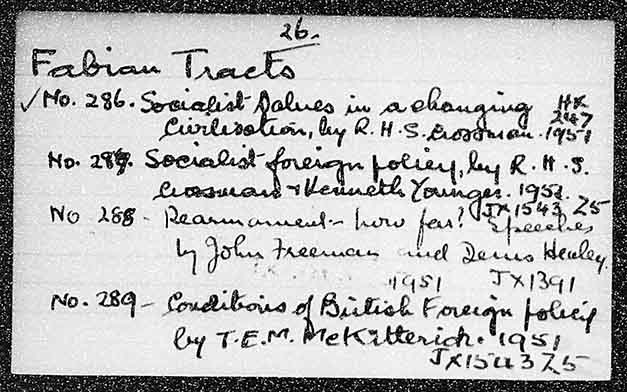 26.
Fabian Tracts
✓ No. 286. Socialist Values in a changing HX
Civilisation, by R. H. S. Crossman. 1951 247
No. 287. Socialist foreign policy, by R. H. S.
Crossman & Kenneth Younger. 1951.
No 288 - Rearmament - how far? Speeches JX1543 Z5
by John Freeman and Denis Healey.
1951 JX1391
No. 289 - Conditions of British Foreign policy
by T.E.M. McKitterick. 1951
JX1543 Z5